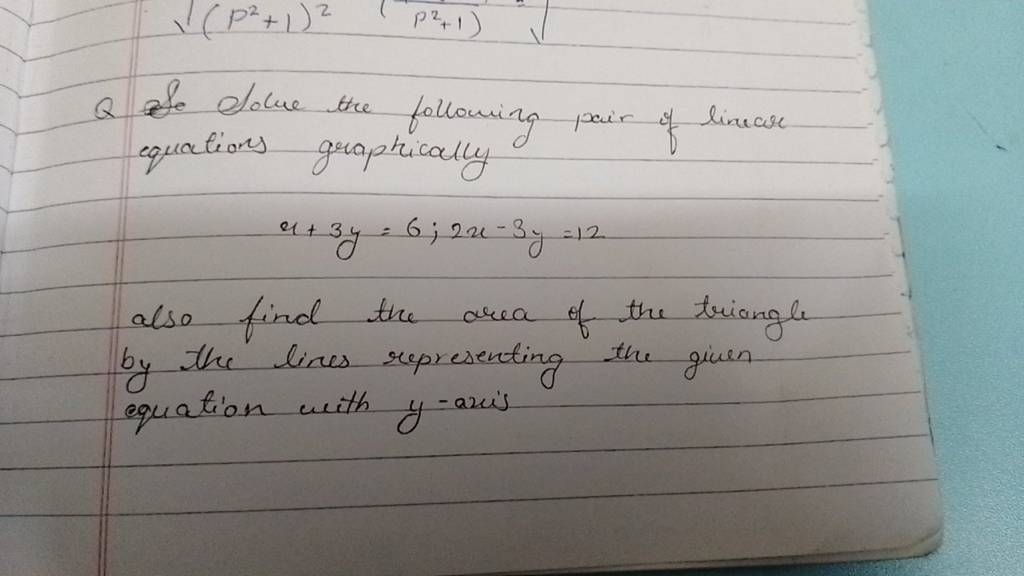 √(p²+1)² (p²+1)
Q Solve the following pair of linear
equations graphically
x + 3y = 6 ; 2x - 3y = 12
also find the area of the triangle
by the lines representing the given
equation with y-axis